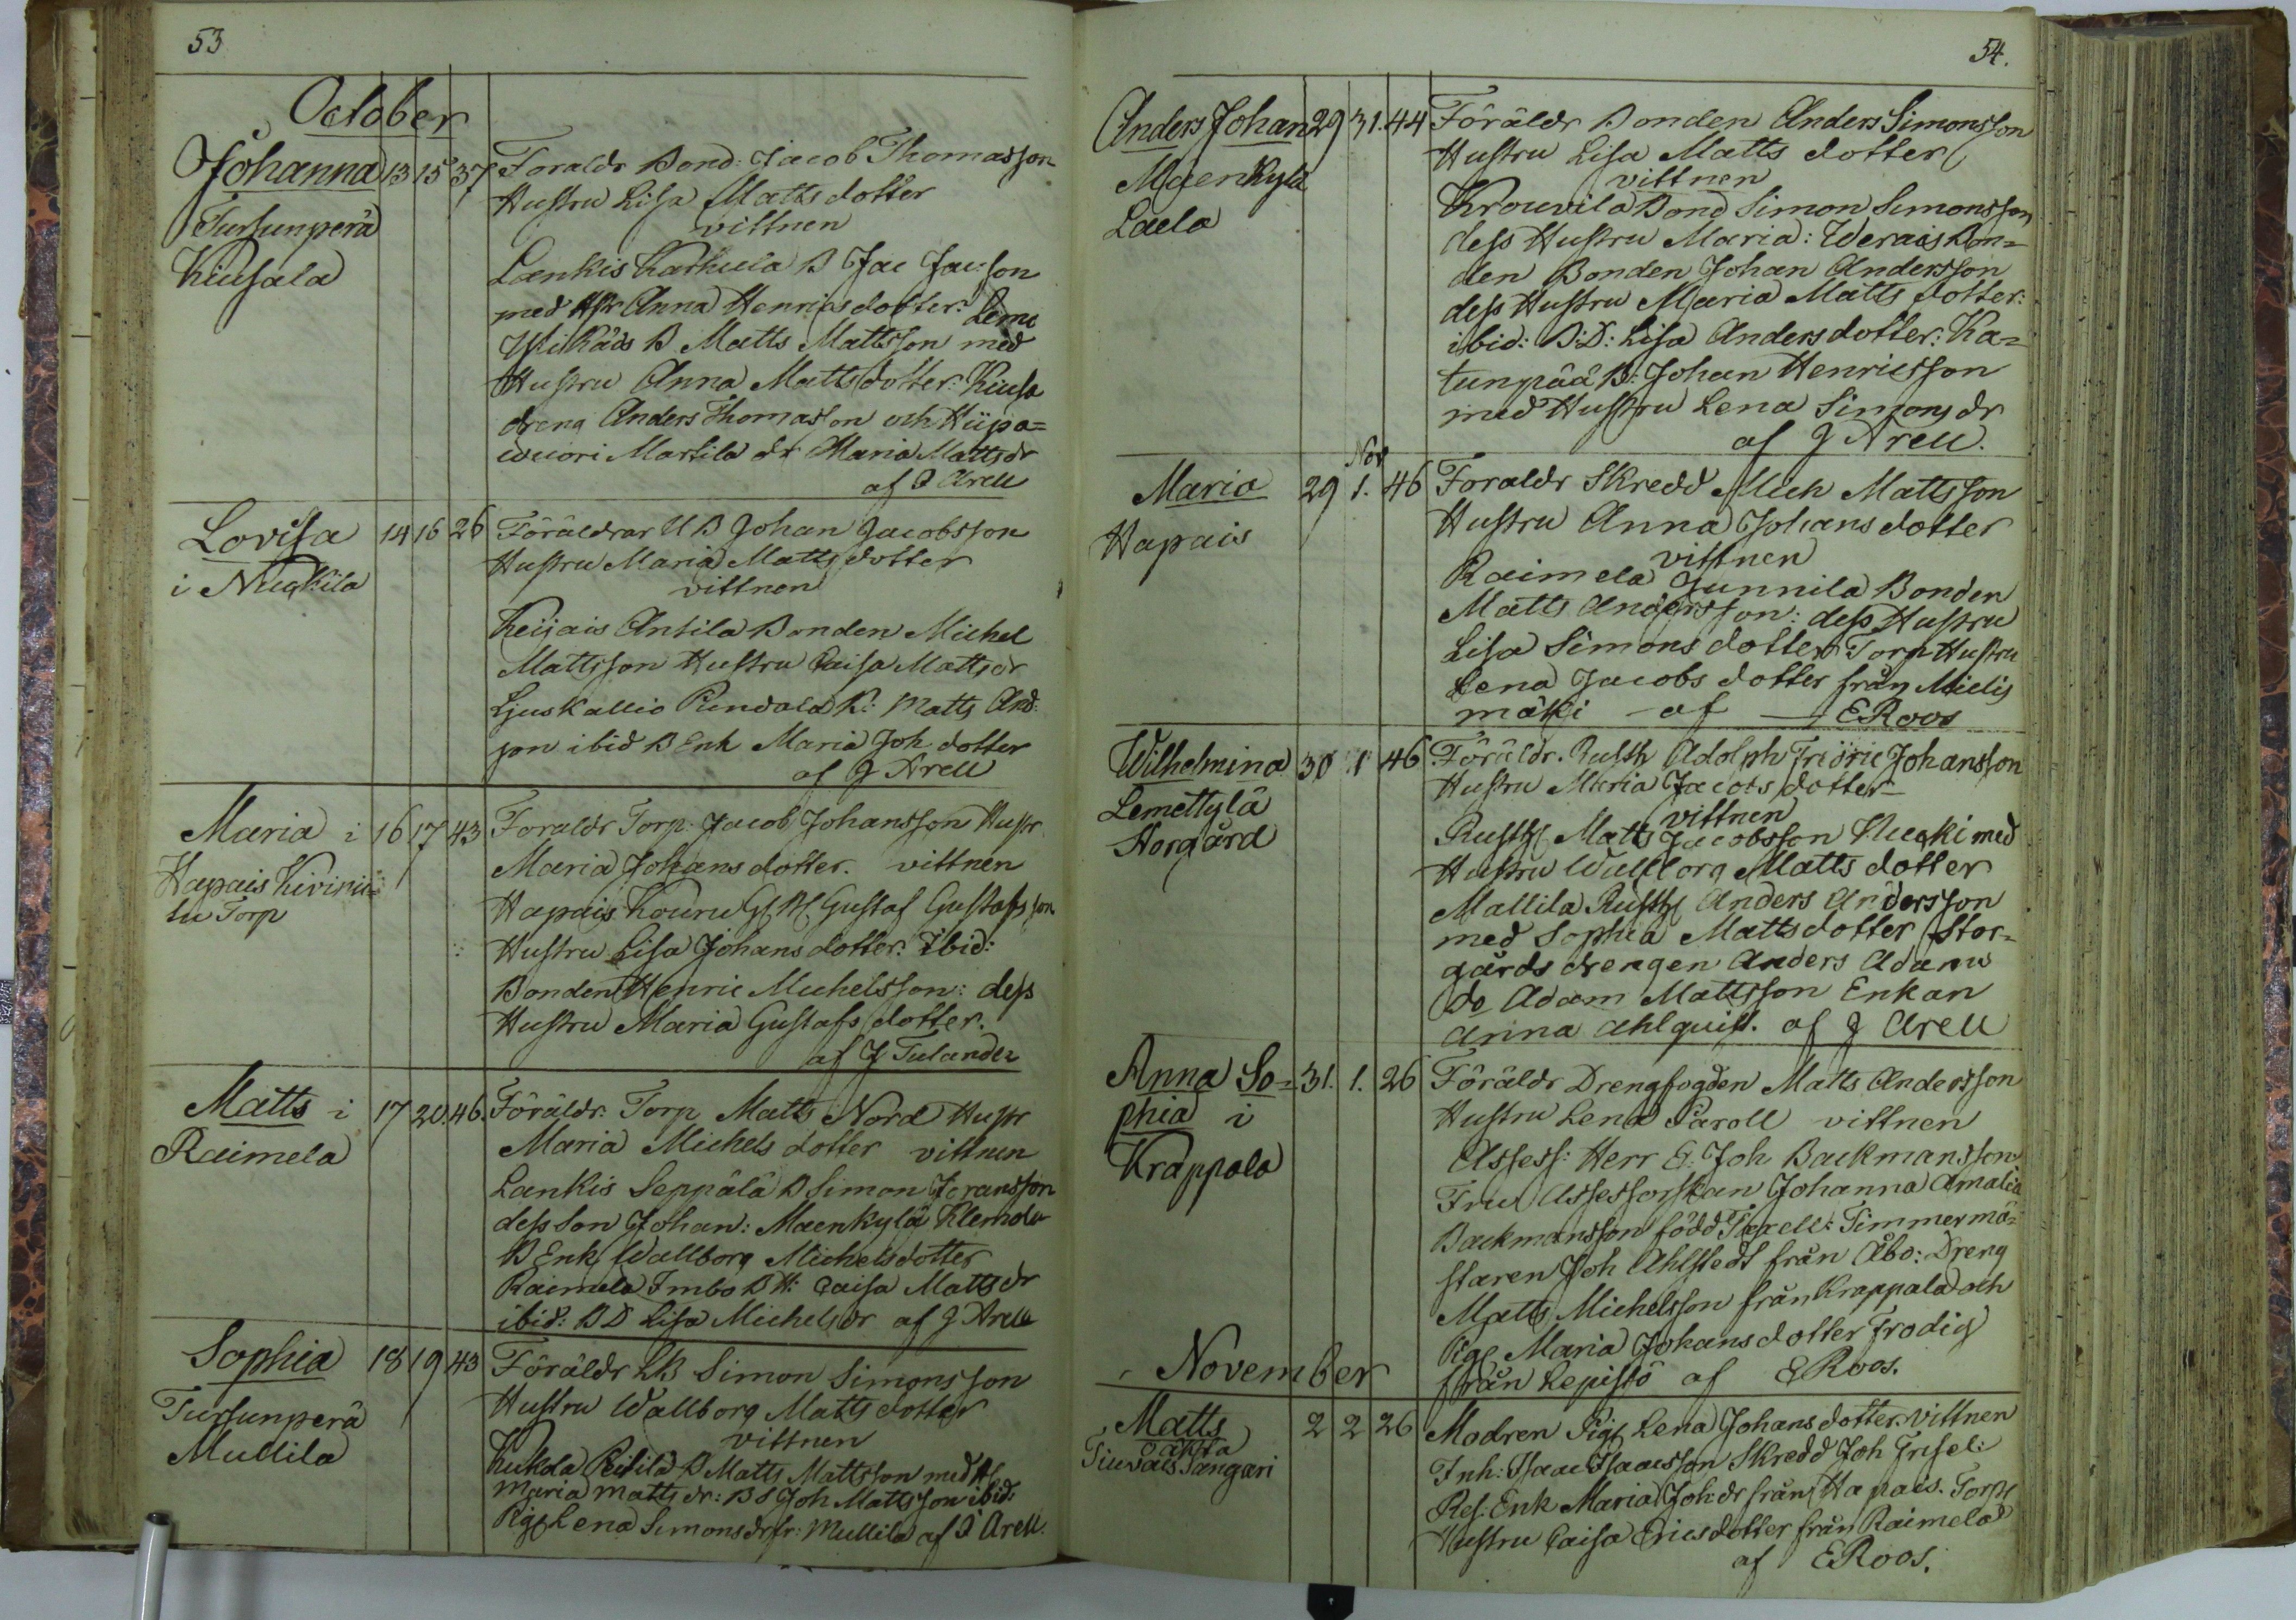 53
October
Johanna 13 15 37 Foraldr Bond: Jacob Thomasson
Tursunperä
Kiusala
Hustru Lisa Matts dotter
vittnen
Lankis Karhula B Jac Jacsson
med Hst Anna Henricsdotter: Lemo
B Matts Mattsson med
Hustru Anna Matts dotter: Kiusa
dreng Anders Thomasson och Hiipa=
wuori Martila dr Maria Mattsdr
af J Arell
Lovisa 14 16 26 Föräldrar U B Johan Jacobsson
i Niuskila
Hustru Maria Matts dotter
vittnen
Keijais Antila Bonden Michel
Mattsson Hustru Caisa Mattsdr
Ljuskallio K: Matts And:
son ibid B Enk Maria Joh dotter
af J Arell
Maria i 16 17 43 Foraldr Torp: Jacob Johansson Hustr
Hapais Kivinii=
tu Torp
Maria Johans dotter. vittnen
Hapais Kouru Gustaf Gustafsson
Hustru Lisa Johans dotter. Ibid:
Bonden Henric Michelsson: dess
Hustru Maria Gustafs dotter.
af J Tulander
Matts i 17 20. 46. Föräldr. Torp Matts Nord Hustr
Raimela
Maria Michels dotter vittnen
Lankis Seppälä B Simon Joransson
dess Son Johan: Maenkylä Klemola
B Enk Wallborg Michelsdotter
Raimela Imbo B H: Caisa Mattsdr
ibid: B D Lisa Michelsdr af J Arell
Sophia 18 19 43 Föräldr LB Simon Simonsson
Tursunperä
Mullila
Hustru Wallborg Matts dotter
vittnen
Kukola B Matts Mattsson med H
Maria Matts dr: B S Joh Mattsson ibid:
Pig Lena Simonsdr fr: Mullila af J Arell.
54.
Anders Johan 29 31. 44 Föräldr Bonden Anders Simonsson
Maenkylä
Laela
Hustru Lisa Matts dotter
vittnen
Krouvila Bond Simon Simonsson
dess Hustru Maria: Werais Bon=
den Bonden Johan Andersson
dess Hustru Maria Matts dotter:
ibid: B:D: Lisa Anders dotter: Ka=
tunpää B: Johan Henricsson
med Hustru Lena Simons dr
af J Arell.
Nov
Maria 29 1. 46 Foraldr Skredd Mich Mattsson
Hapais
Hustru Anna Johans dotter
vittnen
Raimela Junnila Bonden
Matts Andersson: dess Hustru
Lisa Simons dotter Torp Hustru
Lena Jacobs dotter från Mielis
mäki - af — E Roos
Wilhelmina 30 1 46 Föräldr. Rusth Adolph Fridric Johansson
Lemettylä
Storgård
Hustru Maria Jacobs dotter
vittnen
Rusth Matts Jacobsson med
Hustru Wallborg Matts dotter
Mattila Rusth Anders Andersson
med Sophia Matts dotter Stor=
gårds drengen Anders Adams
do Adam Mattsson Enkan
Anna Ahlquist. af J Arell
Anna So= 31. 1. 26 Föräldr Drengfogden Matts Andersson
phia i
Krappala
Hustru Lena Paroll vittnen
Assess: Herr G: Joh Backmansson
Fru Assessorskan Johanna Amalia
Backmansson född Timmermä=
staren Joh Ahlstedt från Åbo: Dreng
Matts Michelsson från Krappala och
Pig Maria Johans dotter Frodig
från Lepistö af E Roos.
November
Matts 2 2 26 Modren Pig Lena Johans dotter. vittnen
oäkta
Tiuvais Tangari
Inh: Isaac Isaacsson Skredd Joh Frisel:
Ref: Enk Maria Joh:dr från Hapais. Torp
Hustru Caisa Erics dotter från Raimela
af E Roos.